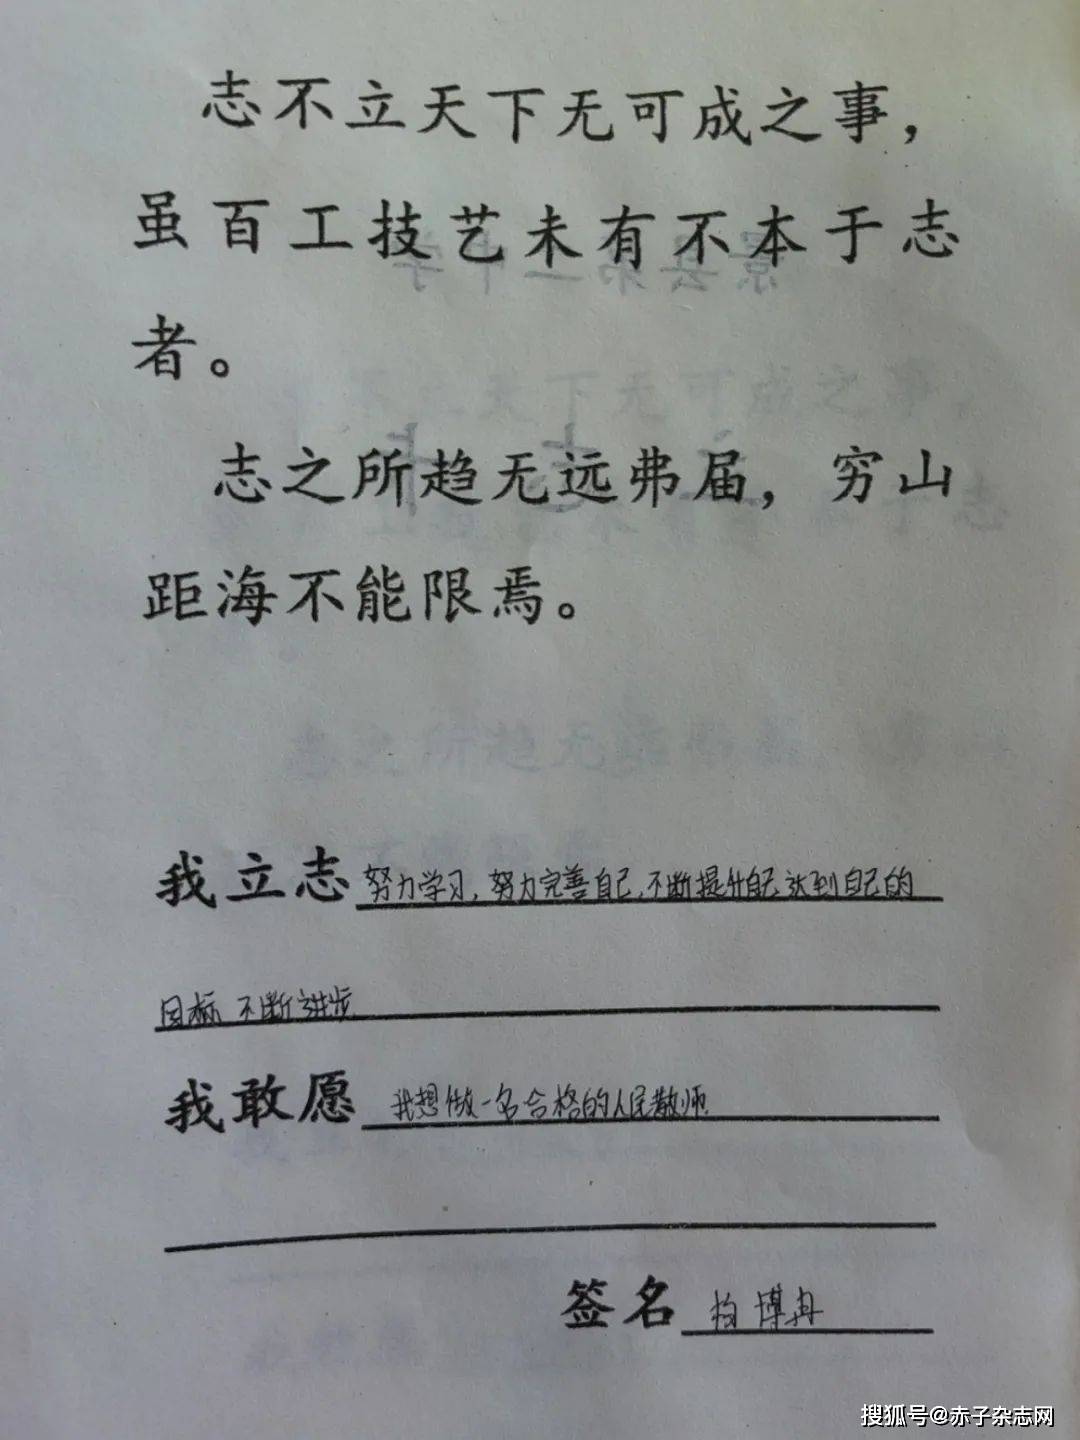 志不立天下无可成之事，
虽百工技艺未有不本于志
者。
志之所趋无远弗届，穷山
距海不能限焉。
我立志 努力学习，努力完善自己，不断提升自己 达到自己的
目标 不断进步
我敢愿 我想做一名合格的人民教师
签名 博冉
搜狐号@赤子杂志网